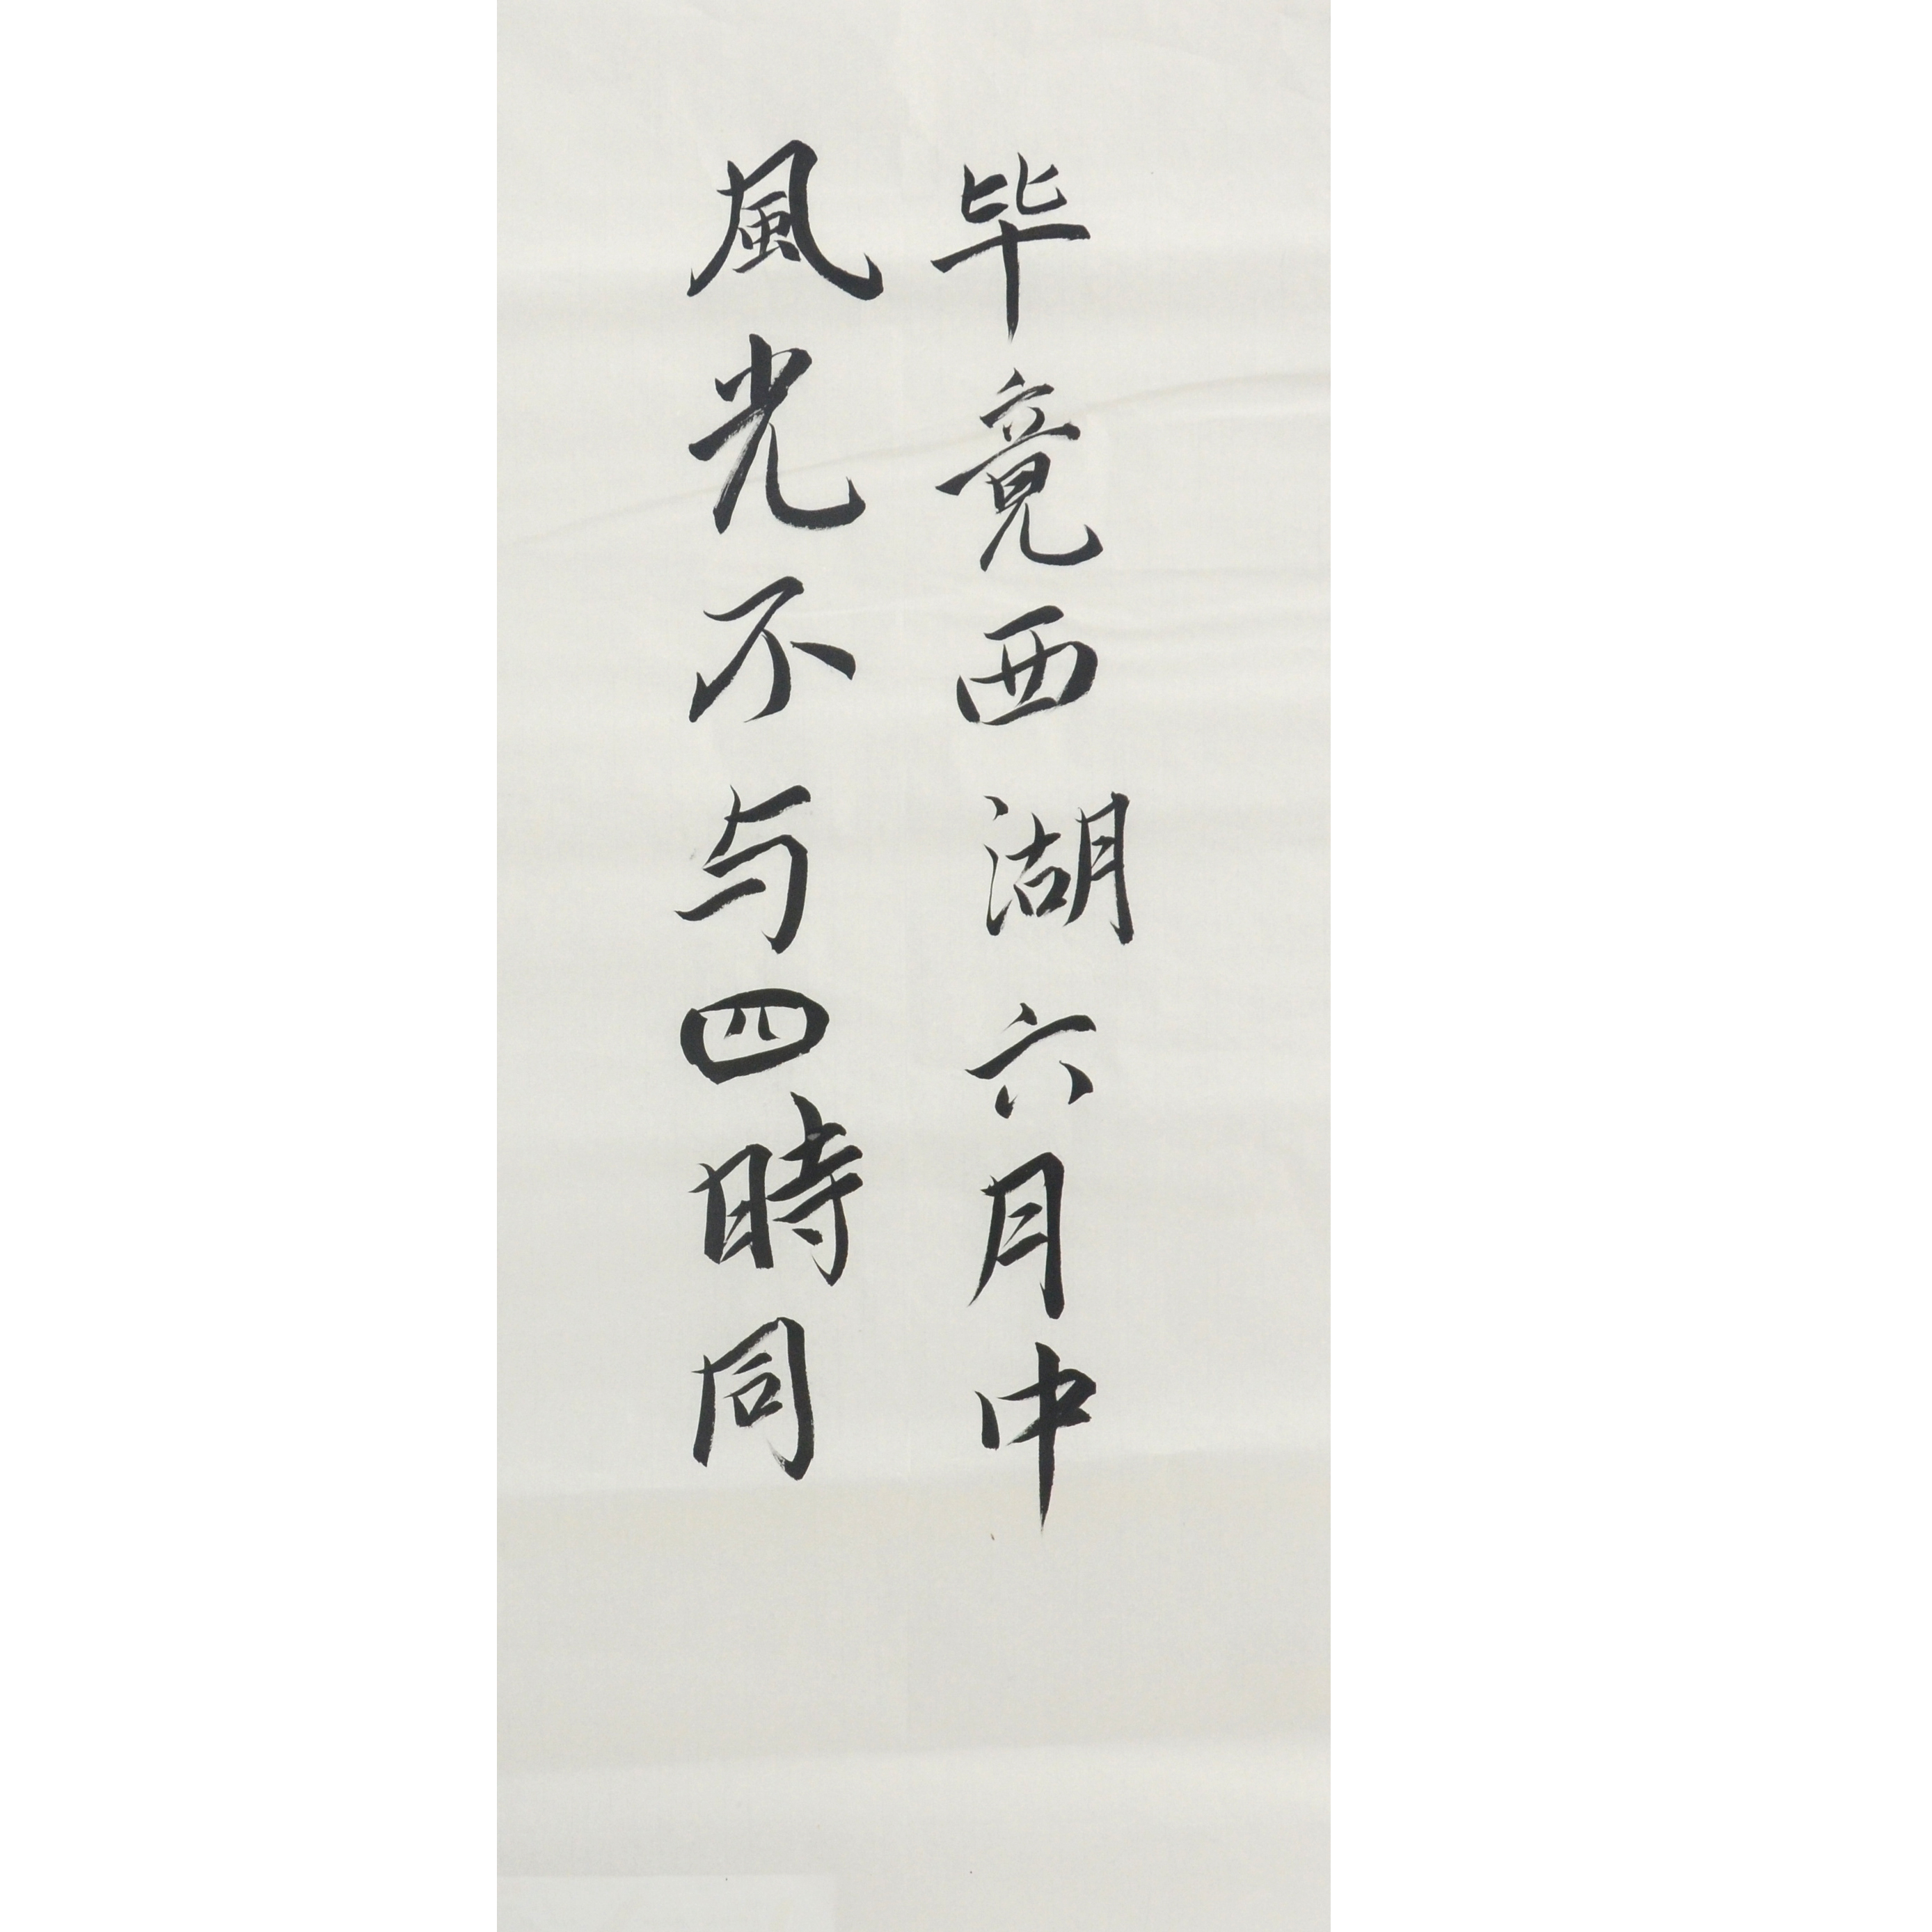 毕竟西湖六月中
風光不与四時同